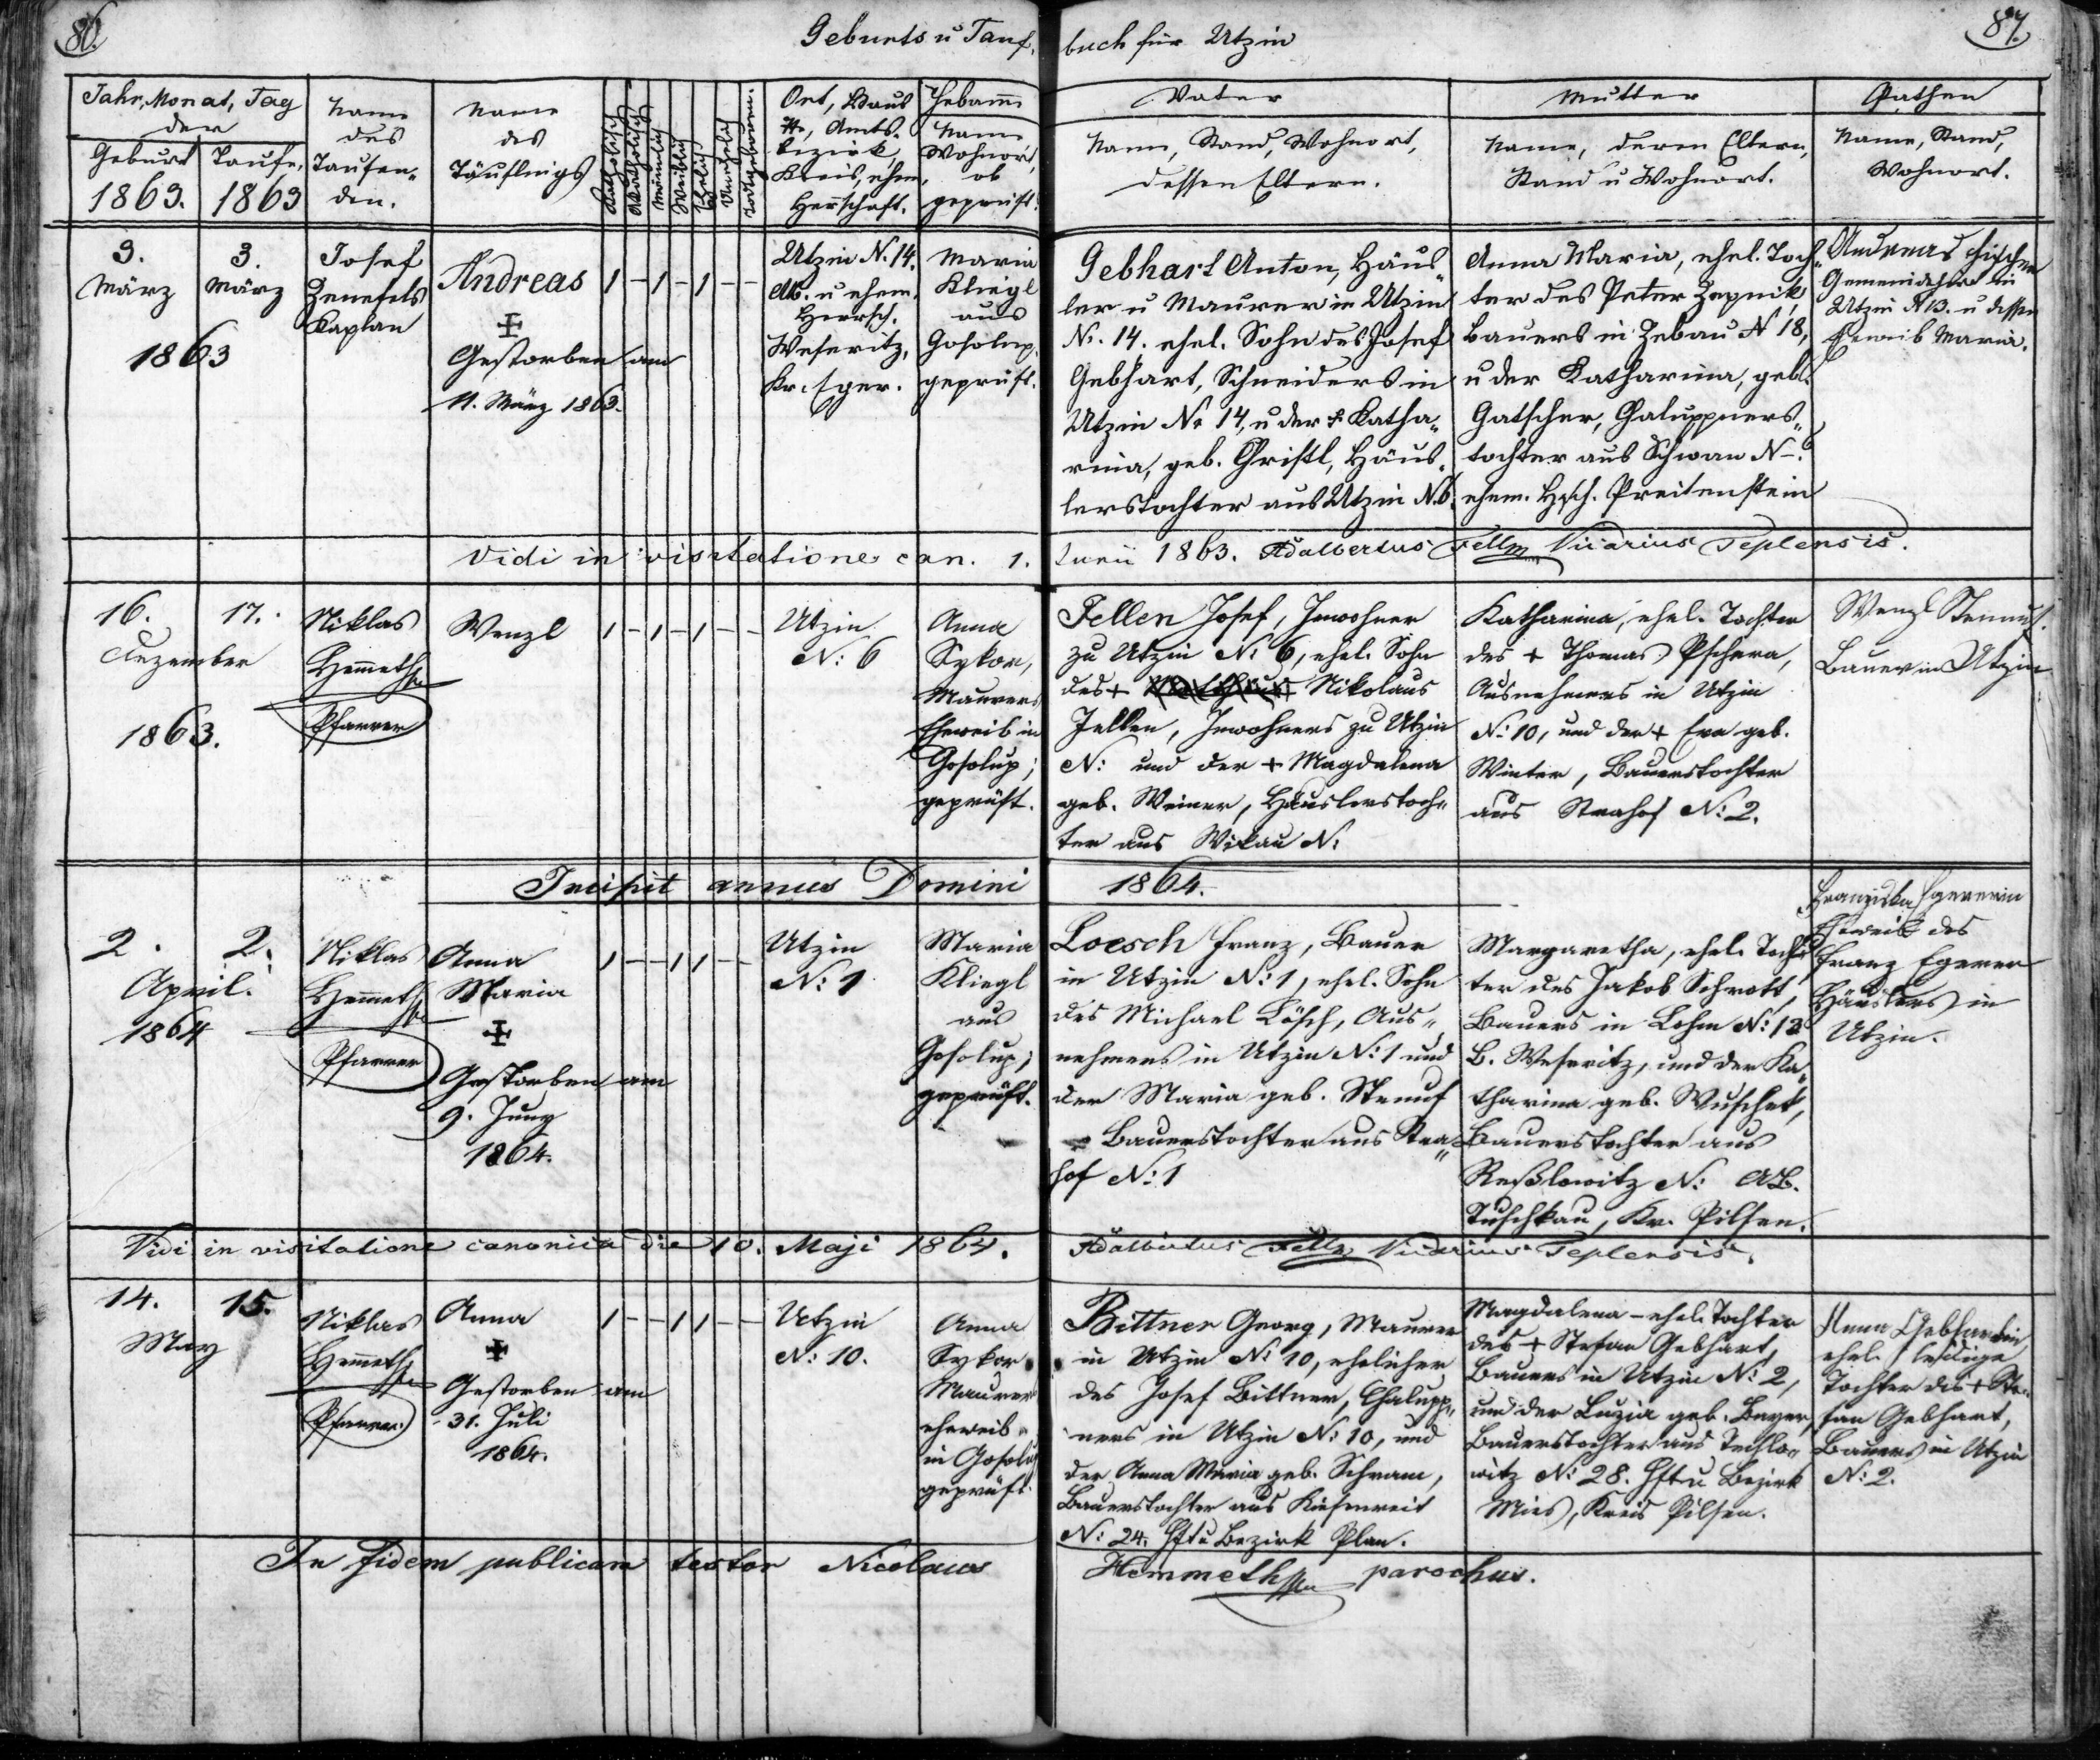 86.
Geburts u Tauf-
buch für Utzin
87.
Jahr, Monat, Tag
der
Geburt
1863.
Taufe,
1863
Name
des
Taufen-
den.
Name
des
Täuflings
Katholisch
Akatholisch
Mänlich
Weiblich
Ehelich
Unehelich
Todtgeboren.
Ort, Haus
N., Amts-
bezirk,
Kreis, ehem.
Herrschaft.
Hebamme
Name
Wohnort,
ob
geprüft?
Vater
Name, Stand, Wohnort,
dessen Eltern.
Mutter
Name, deren Eltern,
Stand u Wohnort.
Pathen
Name, Stand,
Wohnort.
3.
März
3.
März
1863
Josef
Kaplan
Andreas
Gestorben am
11. März 1863.
1 - 1 - 1 - -
Utzin N. 14.
AB. u ehem.
Herrsch.
Weseritz,
Kr. Eger.
Maria
Kliegl
aus
Gosolup,
geprüft.
Gebhart Anton, Häus-
ler u Maurer in Utzin
N. 14. ehel. Sohn des Josef
Gebhart, Schneiders in
Utzin No 14, u der + Katha-
rina, geb. Christl, Häus-
lerstochter aus Utzin N. 6.
Anna Maria, ehel. Toch-
ter des Peter Zapnik,
Bauers in Zebau N 18,
u der Katharina, geb.
Gatscher, Chaluppners-
tochter aus Schwan N -
ehem. Hsch. Preitenstein
Andreas Fischer
in
Utzin N 13. u dessen
Eheweib Maria.
Vidi in visitatione can. 1. Junii 1863. Adalbertus Fellm Vicarius Teplensis.
16.
17.
Dezember
1863.
Niklas
Hemmeth
Pfarrer
Wenzl
1 - 1 - 1 - -
Utzin
N: 6
Anna
Sykor,
Maurers
Eheweib in
Gosolup;
geprüft.
Fellen Josef, Inwohner
zu Utzin N: 6, ehel. Sohn
des + Nikolaus
Fellen, Inwohners zu Utzin
N: und der + Magdalena
geb. Weiner, Häuslerstoch-
ter aus Wikau N:
Katharina, ehel. Tochter
des + Thomas Pschera,
Ausnehmers in Utzin
N: 10, und der + Eva geb.
Winter, Bauerstochter
aus Strahof N: 2.
Wenzl Stenuf
Bauer in Utzin
Incipit annus Domini 1864.
2.
2.
April.
1864
Niklas
Hemmeth
Pfarrer
Anna
Maria
Gestorben am
9. Juny
1864.
1 - - 1 1 - -
Utzin
N: 1
Maria
Kliegl
aus
Gosolup;
geprüft.
Loesch Franz, Bauer
in Utzin N: 1, ehel. Sohn
des Michael Lösch, Aus-
nehmers in Utzin N: 1 und
der Maria geb. Stenuf
Bauerstochter aus Stra-
hof N: 1
Margaretha, ehel. Toch-
ter des Jakob Schrott,
Bauers in Lohm N: 13
B. Weseritz, und der Ka-
tharina geb. Wuschek,
Bauerstochter aus
Reßlowitz N: AB.
Tuschkau, Kr. Pilsen.
Franziska Egererin
Eheweib des
Franz Egerer
Häuslers in
Utzin.
Vidi in visitatione canonica die 10. Maji 1864. Adalbertus Fellm Vicarius Teplensis.
14.
15.
May
Niklas
Hemmeth
Pfarrer
Anna
Gestorben am
31. Juli
1864.
1 - - 1 1 - -
Utzin
N: 10.
Anna
Sykor
Maurers
eheweib
in Gosolup
geprüft.
Bittner Georg, Maurer
in Utzin N: 10, ehelicher
des Josef Bittner, Chalupp-
ners in Utzin N: 10, und
der Anna Maria geb. Schram,
Bauerstochter aus Kiesenreit
N: 24. Hft u Bezirk Plan.
Magdalena - ehel. Tochter
des + Stefan Gebhart,
Bauers in Utzin N: 2,
und der Luzia geb. Bayer,
Bauerstochter aus Techlo-
witz N: 28. Hft u Bezirk
Mies, Kreis Pilsen.
Anna Gebhardin
ehel. ledige
Tochter des + Ste-
fan Gebhart,
Bauers in Utzin
N: 2.
In fidem publicam testor Nicolaus Hemmeth parochus.